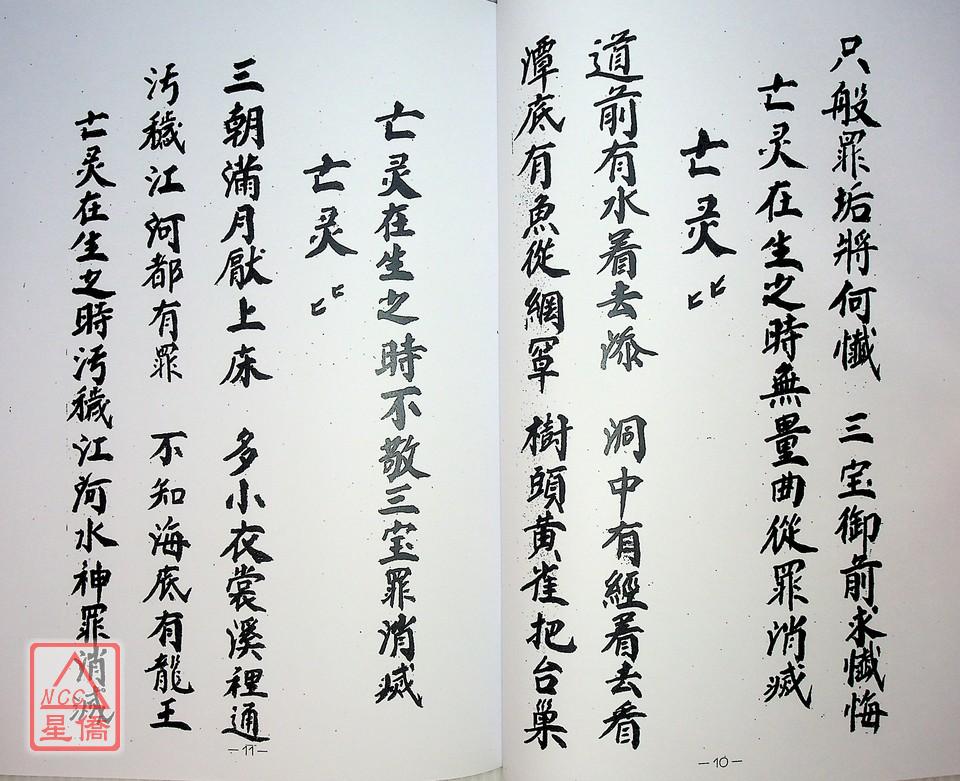 只般罪垢將何懺 三宝御前求懺悔
亡灵在生之時無量曲從罪消灭
亡灵
道前有水看去添 洞中有經看去看
潭底有魚從網罩 樹頭黄雀把台巢
-10-
亡灵在生之時不敬三宝罪消灭
亡灵
三朝滿月厭上床 多小衣裳溪裡通
汚穢江河都有罪 不知海底有龍王
亡灵在生之時汚穢江河水神罪消灭
-11-
NCC
星僑